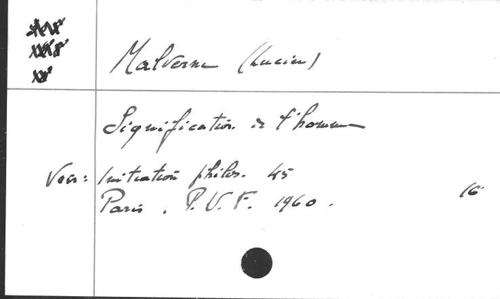 Malverne (Lucien)
Signification de l'homme
Voir: Initiation philos. 45
Paris. P.U.F. 1960.
16